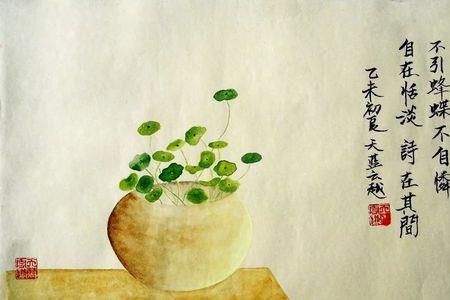 不引蜂蝶不自憐
自在恬淡 詩在其間
乙未初夏 天藍云越